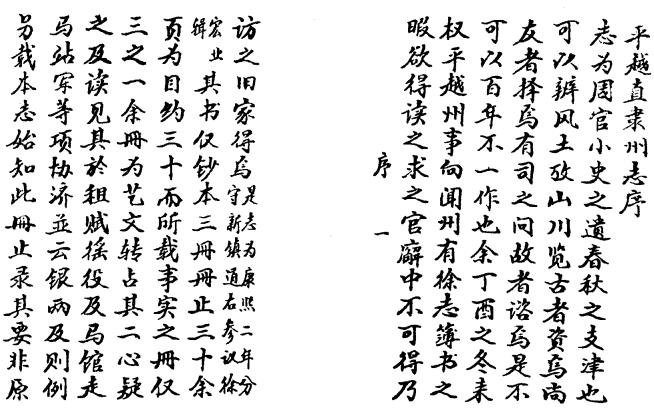 平越直隶州志序
志为周官小史之遗春秋之支津也
可以辨风土攷山川览古者资焉尚
友者择焉有司之问故者谘焉是不
可以百年不一作也余丁酉之冬来
权平越州事向闻州有徐志簿书之
暇欲得读之求之官廨中不可得乃
序 一
访之旧家得焉是志为康熙二年分
守新镇道右参议徐
宏业
辑 其书仅钞本三册册止三十余
页为目约三十而所载事实之册仅
三之一余册为艺文转占其二心疑
之及读见其於租赋徭役及马馆走
马站军等项协济並云银两及则例
另载本志始知此册止录其要非原